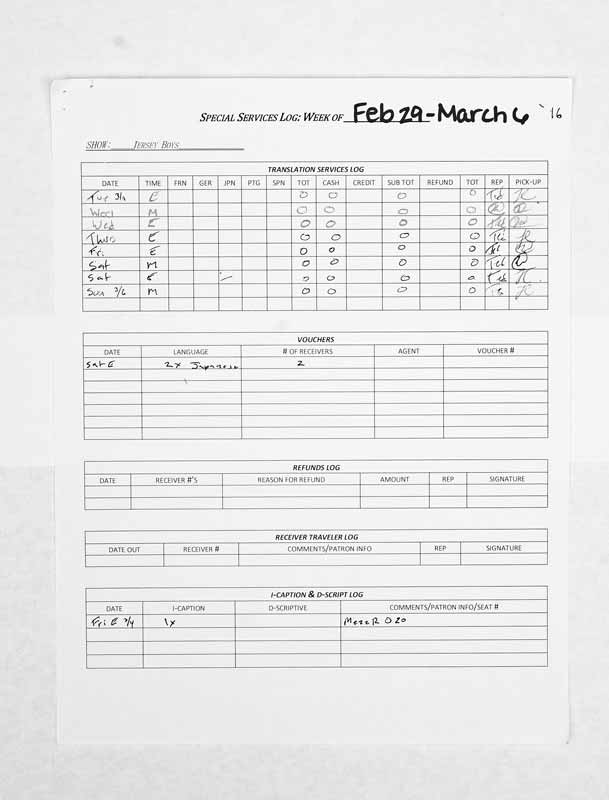 SPECIAL SERVICES LOG: WEEK OF Feb 29-March 6 '16
SHOW: JERSEY BOYS
TRANSLATION SERVICES LOG
DATE TIME FRN GER JPN PTG SPN TOT CASH CREDIT SUB TOT REFUND TOT REP PICK-UP
Tue 3/1 E 0 0 0 0 Ted
Wed M 0 0 0 0
Wed E 0 0 0 0 Ted
Thur E 0 0 0 0 Ted
Fri. E 0 0 0 0 Ted
Sat M 0 0 0 0 Ted
Sat E 0 0 0 0 Ted
Sun 3/6 M 0 0 0 0
VOUCHERS
DATE LANGUAGE # OF RECEIVERS AGENT VOUCHER #
Sat E 2x Japanese 2
REFUNDS LOG
DATE RECEIVER #'S REASON FOR REFUND AMOUNT REP SIGNATURE
RECEIVER TRAVELER LOG
DATE OUT RECEIVER # COMMENTS/PATRON INFO REP SIGNATURE
I-CAPTION & D-SCRIPT LOG
DATE I-CAPTION D-SCRIPTIVE COMMENTS/PATRON INFO/SEAT #
Fri E 3/4 1x Mezz R D20